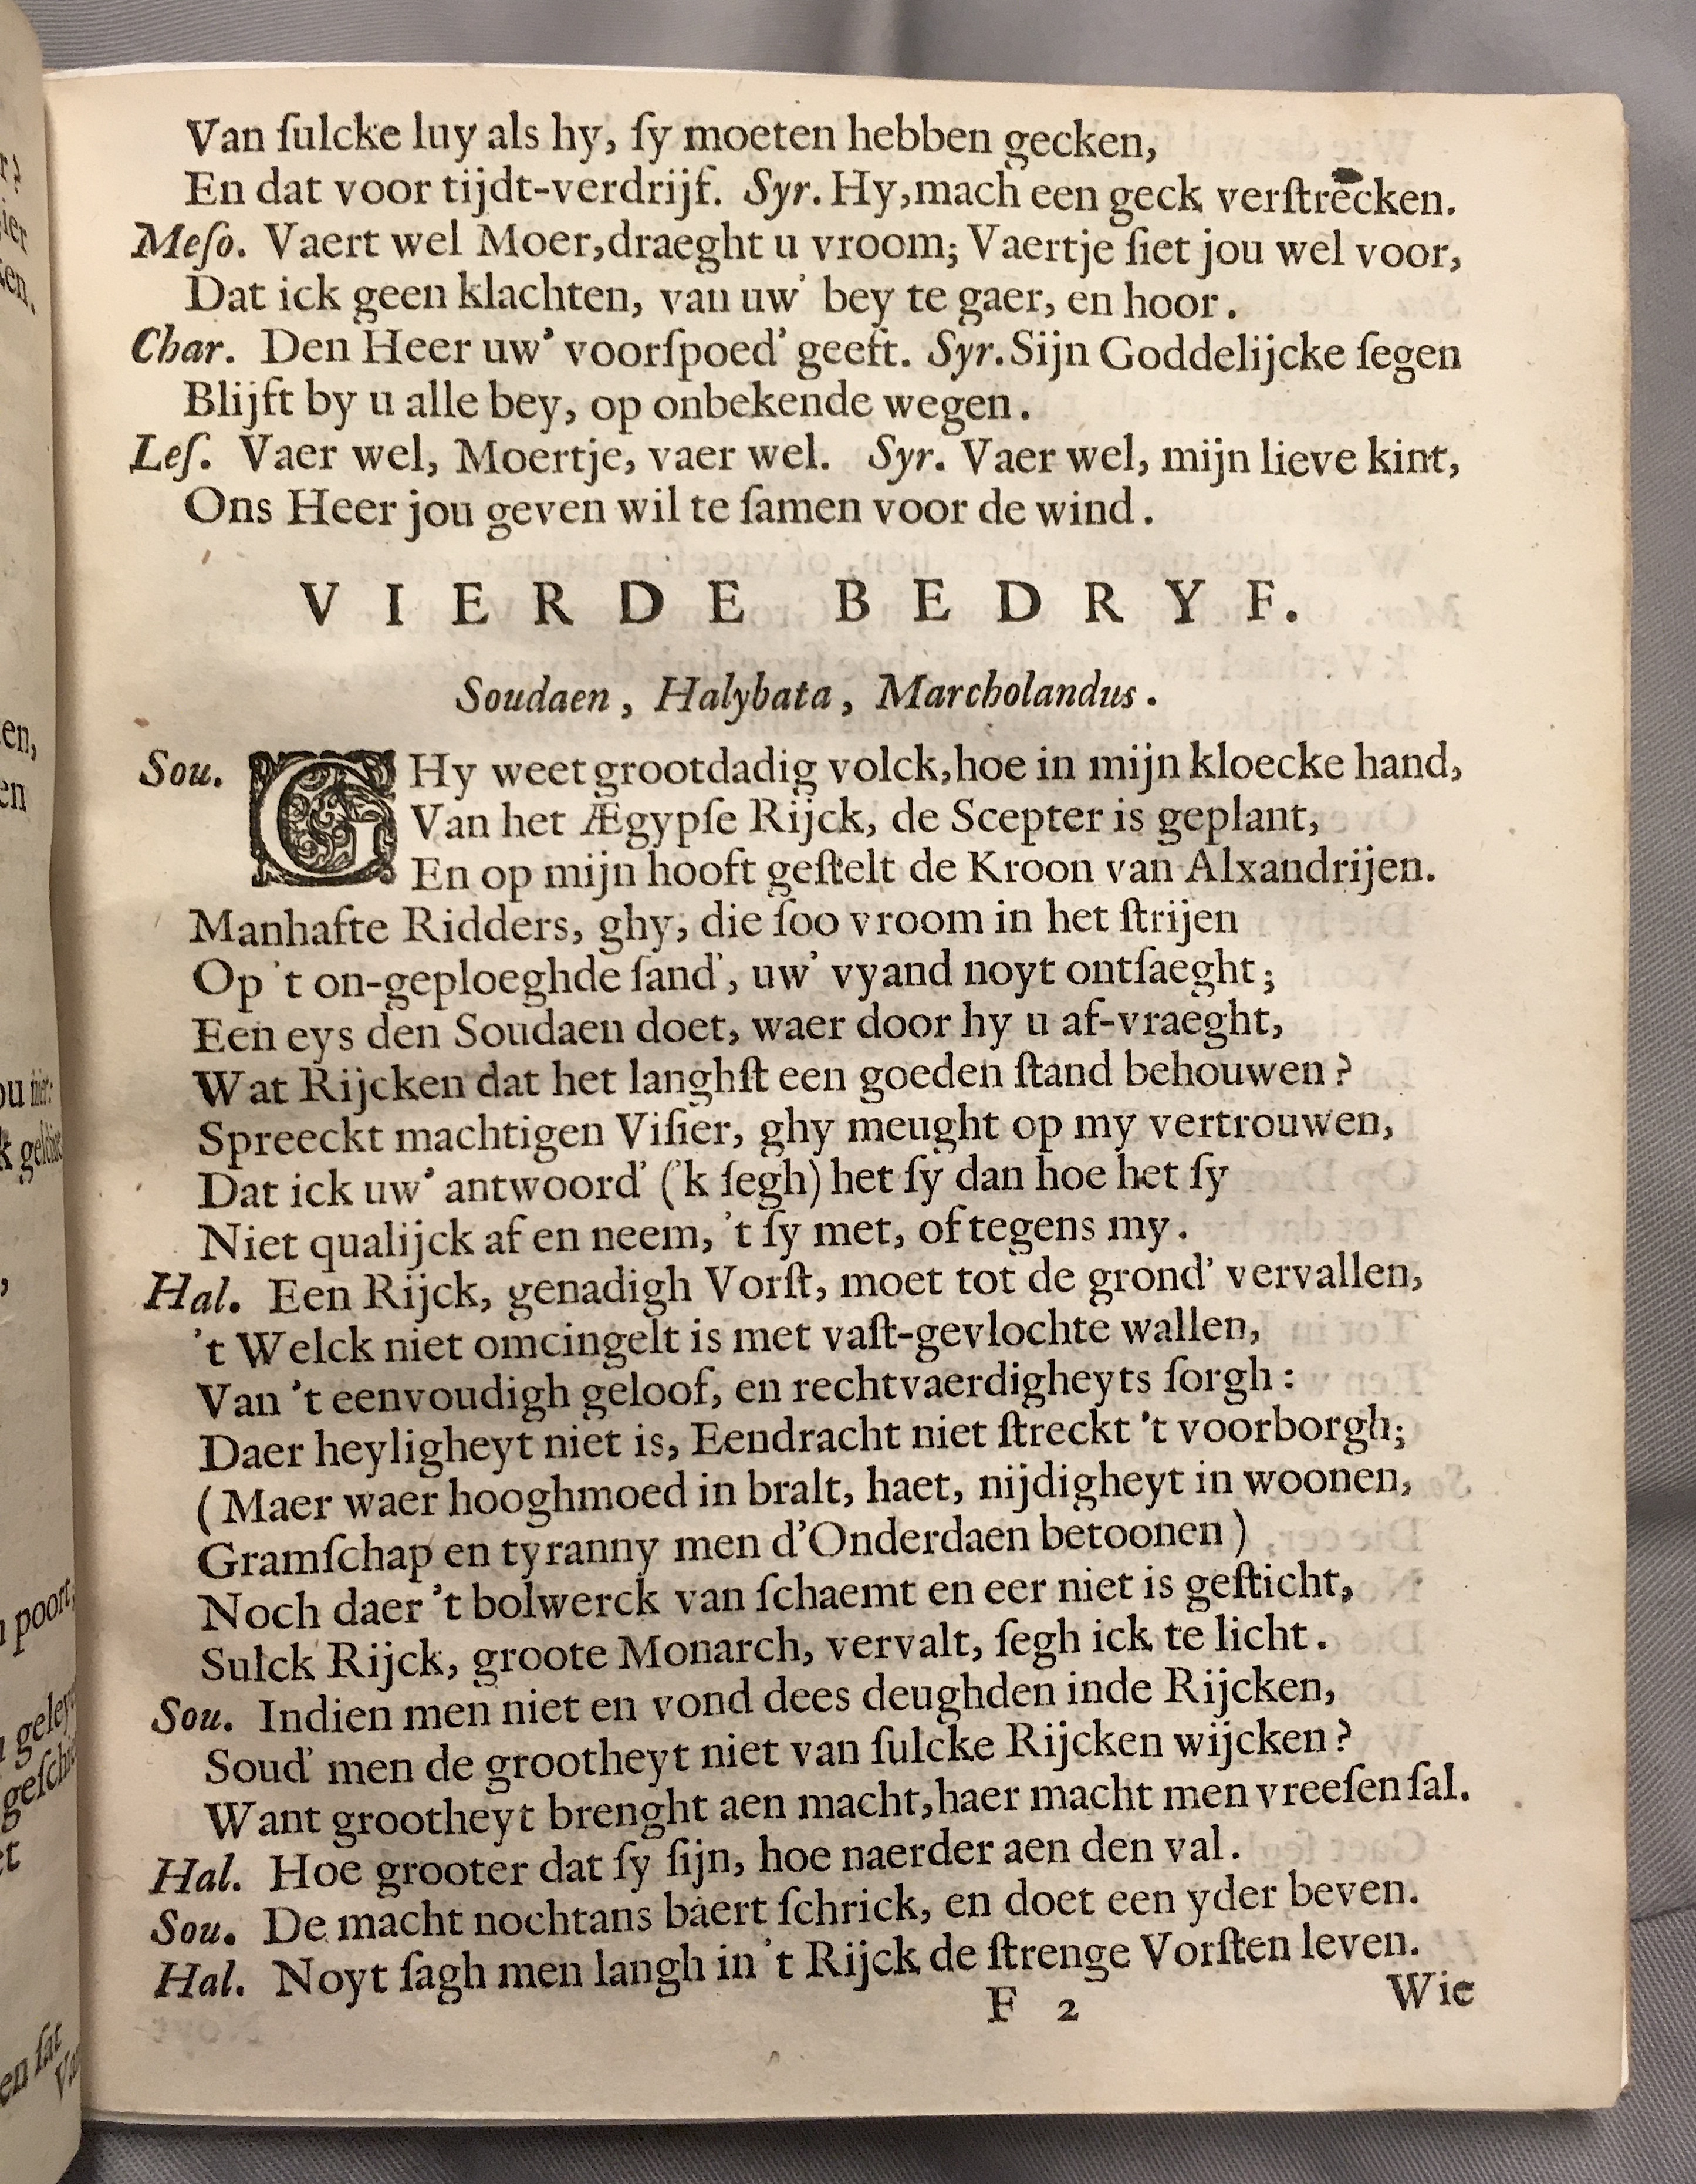 Van ſulcke luy als hy, ſy moeten hebben gecken,
En dat voor tijdt-verdrijf. Syr. Hy,mach een geck verſtrecken.
Meſo. Vaert wel Moer,draeght u vroom; Vaertje ſiet jou wel voor,
Dat ick geen klachten, van uw' bey te gaer, en hoor.
Char. Den Heer uw' voorſpoed' geeft. Syr. Sijn Goddelijcke ſegen
Blijft by u alle bey, op onbekende wegen.
Leſ. Vaer wel, Moertje, vaer wel. Syr. Vaer wel, mijn lieve kint,
Ons Heer jou geven wil te ſamen voor de wind.
VIERDE BEDRYF.
Soudaen, Halybata, Marcholandus.
Sou. GHy weet grootdadig volck,hoe in mijn kloecke hand,
Van het Ægypſe Rijck, de Scepter is geplant,
En op mijn hooft geſtelt de Kroon van Alxandrijen.
Manhafte Ridders, ghy, die ſoo vroom in het ſtrijen
Op 't on-geploeghde ſand', uw' vyand noyt ontſaeght;
Een eys den Soudaen doet, waer door hy u af-vraeght,
Wat Rijcken dat het langhſt een goeden ſtand behouwen?
Spreeckt machtigen Viſier, ghy meught op my vertrouwen,
Dat ick uw' antwoord' ('k ſegh) het ſy dan hoe het ſy
Niet qualijck af en neem, 't ſy met, of tegens my.
Hal. Een Rijck, genadigh Vorſt, moet tot de grond' vervallen,
't Welck niet omcingelt is met vaſt-gevlochte wallen,
Van 't eenvoudigh geloof, en rechtvaerdigheyts ſorgh:
Daer heyligheyt niet is, Eendracht niet ſtreckt 't voorborgh;
(Maer waer hooghmoed in bralt, haet, nijdigheyt in woonen,
Gramſchap en tyranny men d'Onderdaen betoonen)
Noch daer 't bolwerck van ſchaemt en eer niet is geſticht,
Sulck Rijck, groote Monarch, vervalt, ſegh ick te licht.
Sou. Indien men niet en vond dees deughden inde Rijcken,
Soud' men de grootheyt niet van ſulcke Rijcken wijcken?
Want grootheyt brenght aen macht,haer macht men vreeſen ſal.
Hal. Hoe grooter dat ſy ſijn, hoe naerder aen den val.
Sou. De macht nochtans baert ſchrick, en doet een yder beven.
Hal. Noyt ſagh men langh in 't Rijck de ſtrenge Vorſten leven.
F 2
Wie